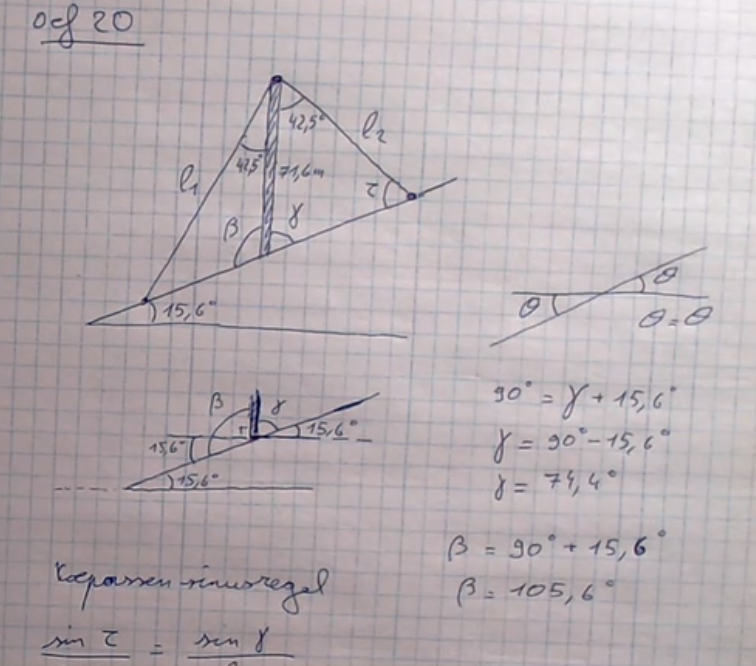 oef 20
42,5°
l2
42,5°
71,6m
l1
τ
β γ
15,6°
θ
θ
θ = θ
β γ
15,6°
15,6°
15,6°
90° = γ + 15,6°
γ = 90° - 15,6°
γ = 74,4°
β = 90° + 15,6°
β = 105,6°
toepassen sinusregel
sin τ = sin γ